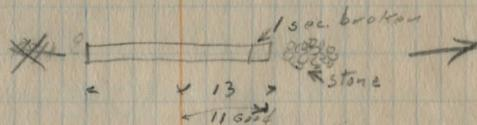 1 sec. broken
stone
13
11